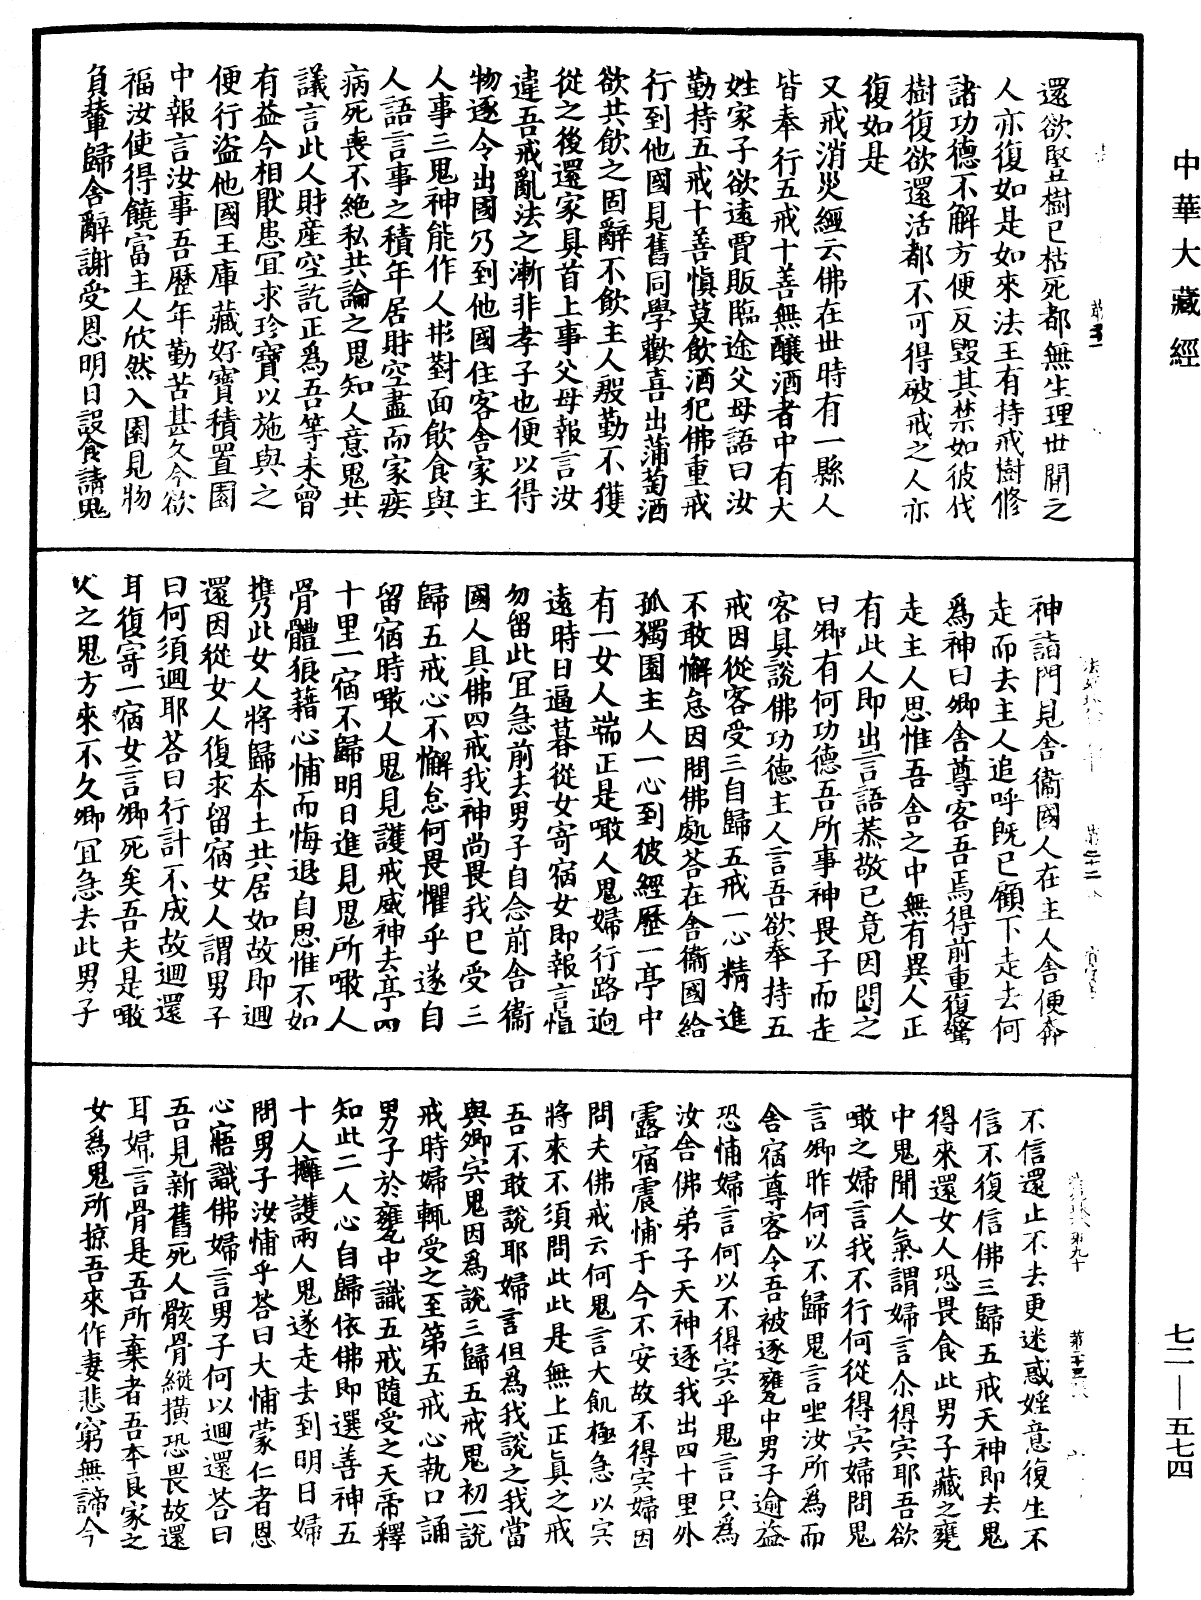 中華大藏經
還欲堅樹已枯死都無生理世間之
人亦復如是如來法王有持戒樹修
諸功德不解方便反毀其禁如彼伐
樹復欲還活都不可得破戒之人亦
復如是
又戒消災經云佛在世時有一縣人
皆奉行五戒十善無釀酒者中有大
姓家子欲遠賈販臨途父母語曰汝
勤持五戒十善慎莫飲酒犯佛重戒
行到他國見舊同學歡喜出蒲萄酒
欲共飲之固辭不飲主人慇勤不獲
從之後還家具首上事父母報言汝
違吾戒亂法之漸非孝子也便以得
物逐令出國乃到他國住客舍家主
人事三鬼神能作人形對面飲食與
人語言事之積年居財空盡而家疾
病死喪不絕私共論之鬼知人意鬼共
議言此人財產空訖正為吾等未曾
有益今相猒患宜求珍寶以施與之
便行盜他國王庫藏好寶積置園
中報言汝事吾歷年勤苦甚久今欲
福汝使得饒富主人欣然入園見物
負輦歸舍辭謝受恩明日設食請鬼
神詣門見舍衞國人在主人舍便奔
走而去主人追呼既已顧下走去何
為神曰卿舍尊客吾焉得前重復驚
走主人思惟吾舍之中無有異人正
有此人即出言語恭敬已竟因問之
曰卿有何功德吾所事神畏子而走
客具說佛功德主人言吾欲奉持五
戒因從客受三自歸五戒一心精進
不敢懈怠因問佛處荅在舍衞國給
孤獨園主人一心到彼經歷一亭中
有一女人端正是噉人鬼婦行路逈
遠時日逼暮從女寄宿女即報言慎
勿留此宜急前去男子自念前舍衞
國人具佛四戒我神尚畏我已受三
歸五戒心不懈怠何畏懼乎遂自
留宿時噉人鬼見護戒威神去亭四
十里一宿不歸明日進見鬼所噉人
骨體狼藉心怖而悔退自思惟不如
携此女人將歸本土共居如故即迴
還因從女人復求留宿女人謂男子
曰何須迴耶荅曰行計不成故迴還
耳復寄一宿女言卿死矣吾夫是噉
人之鬼方來不久卿宜急去此男子
不信還止不去更迷惑婬意復生不
信不復信佛三歸五戒天神即去鬼
得來還女人恐畏食此男子藏之甕
中鬼聞人氣謂婦言尒得宍耶吾欲
噉之婦言我不行何從得宍婦問鬼
言卿昨何以不歸鬼言坐汝所為而
舍宿尊客令吾被逐甕中男子逾益
恐怖婦言何以不得宍乎鬼言只為
汝舍佛弟子天神逐我出四十里外
露宿震怖于今不安故不得宍婦因
問夫佛戒云何鬼言大飢極急以宍
將來不須問此此是無上正真之戒
吾不敢說耶婦言但為我說之我當
與卿宍鬼因為說三歸五戒鬼初一說
戒時婦輒受之至第五戒心執口誦
男子於甕中識五戒隨受之天帝釋
知此二人心自歸依佛即選善神五
十人擁護兩人鬼遂走去到明日婦
問男子汝怖乎荅曰大怖蒙仁者恩
心寤識佛婦言男子何以迴還荅曰
吾見新舊死人骸骨縱橫恐畏故還
耳婦言骨是吾所棄者吾本良家之
女為鬼所掠吾來作妻悲窮無諦今
七二—五七四